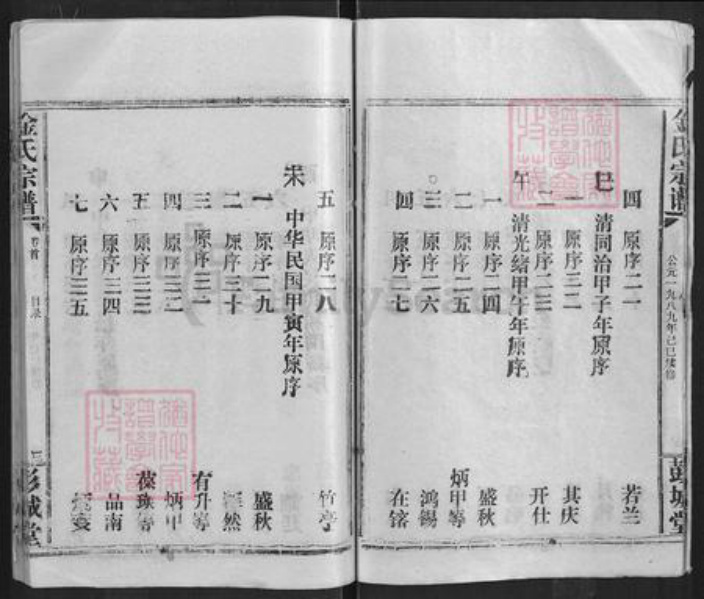 金氏宗谱
公元一九八九年己巳续修
彭城堂
四 原序二一 若兰
巳 清同治甲子年原序
一 原序二二 其庆
二 原序二三 开仕
午 清光绪甲午年原序
一 原序二四 盛秋
二 原序二五 炳甲等
三 原序二六 鸿锡
四 原序二七 在镕
五 原序二八 竹亭
未 中华民国甲寅年原序
一 原序二九 盛秋
二 原序三十 然
三 原序三一 有升等
四 原序三二 炳甲
五 原序三三 葆瑛等
六 原序三四 品南
七 原序三五
金氏宗谱
卷首
目录
三
彭城堂